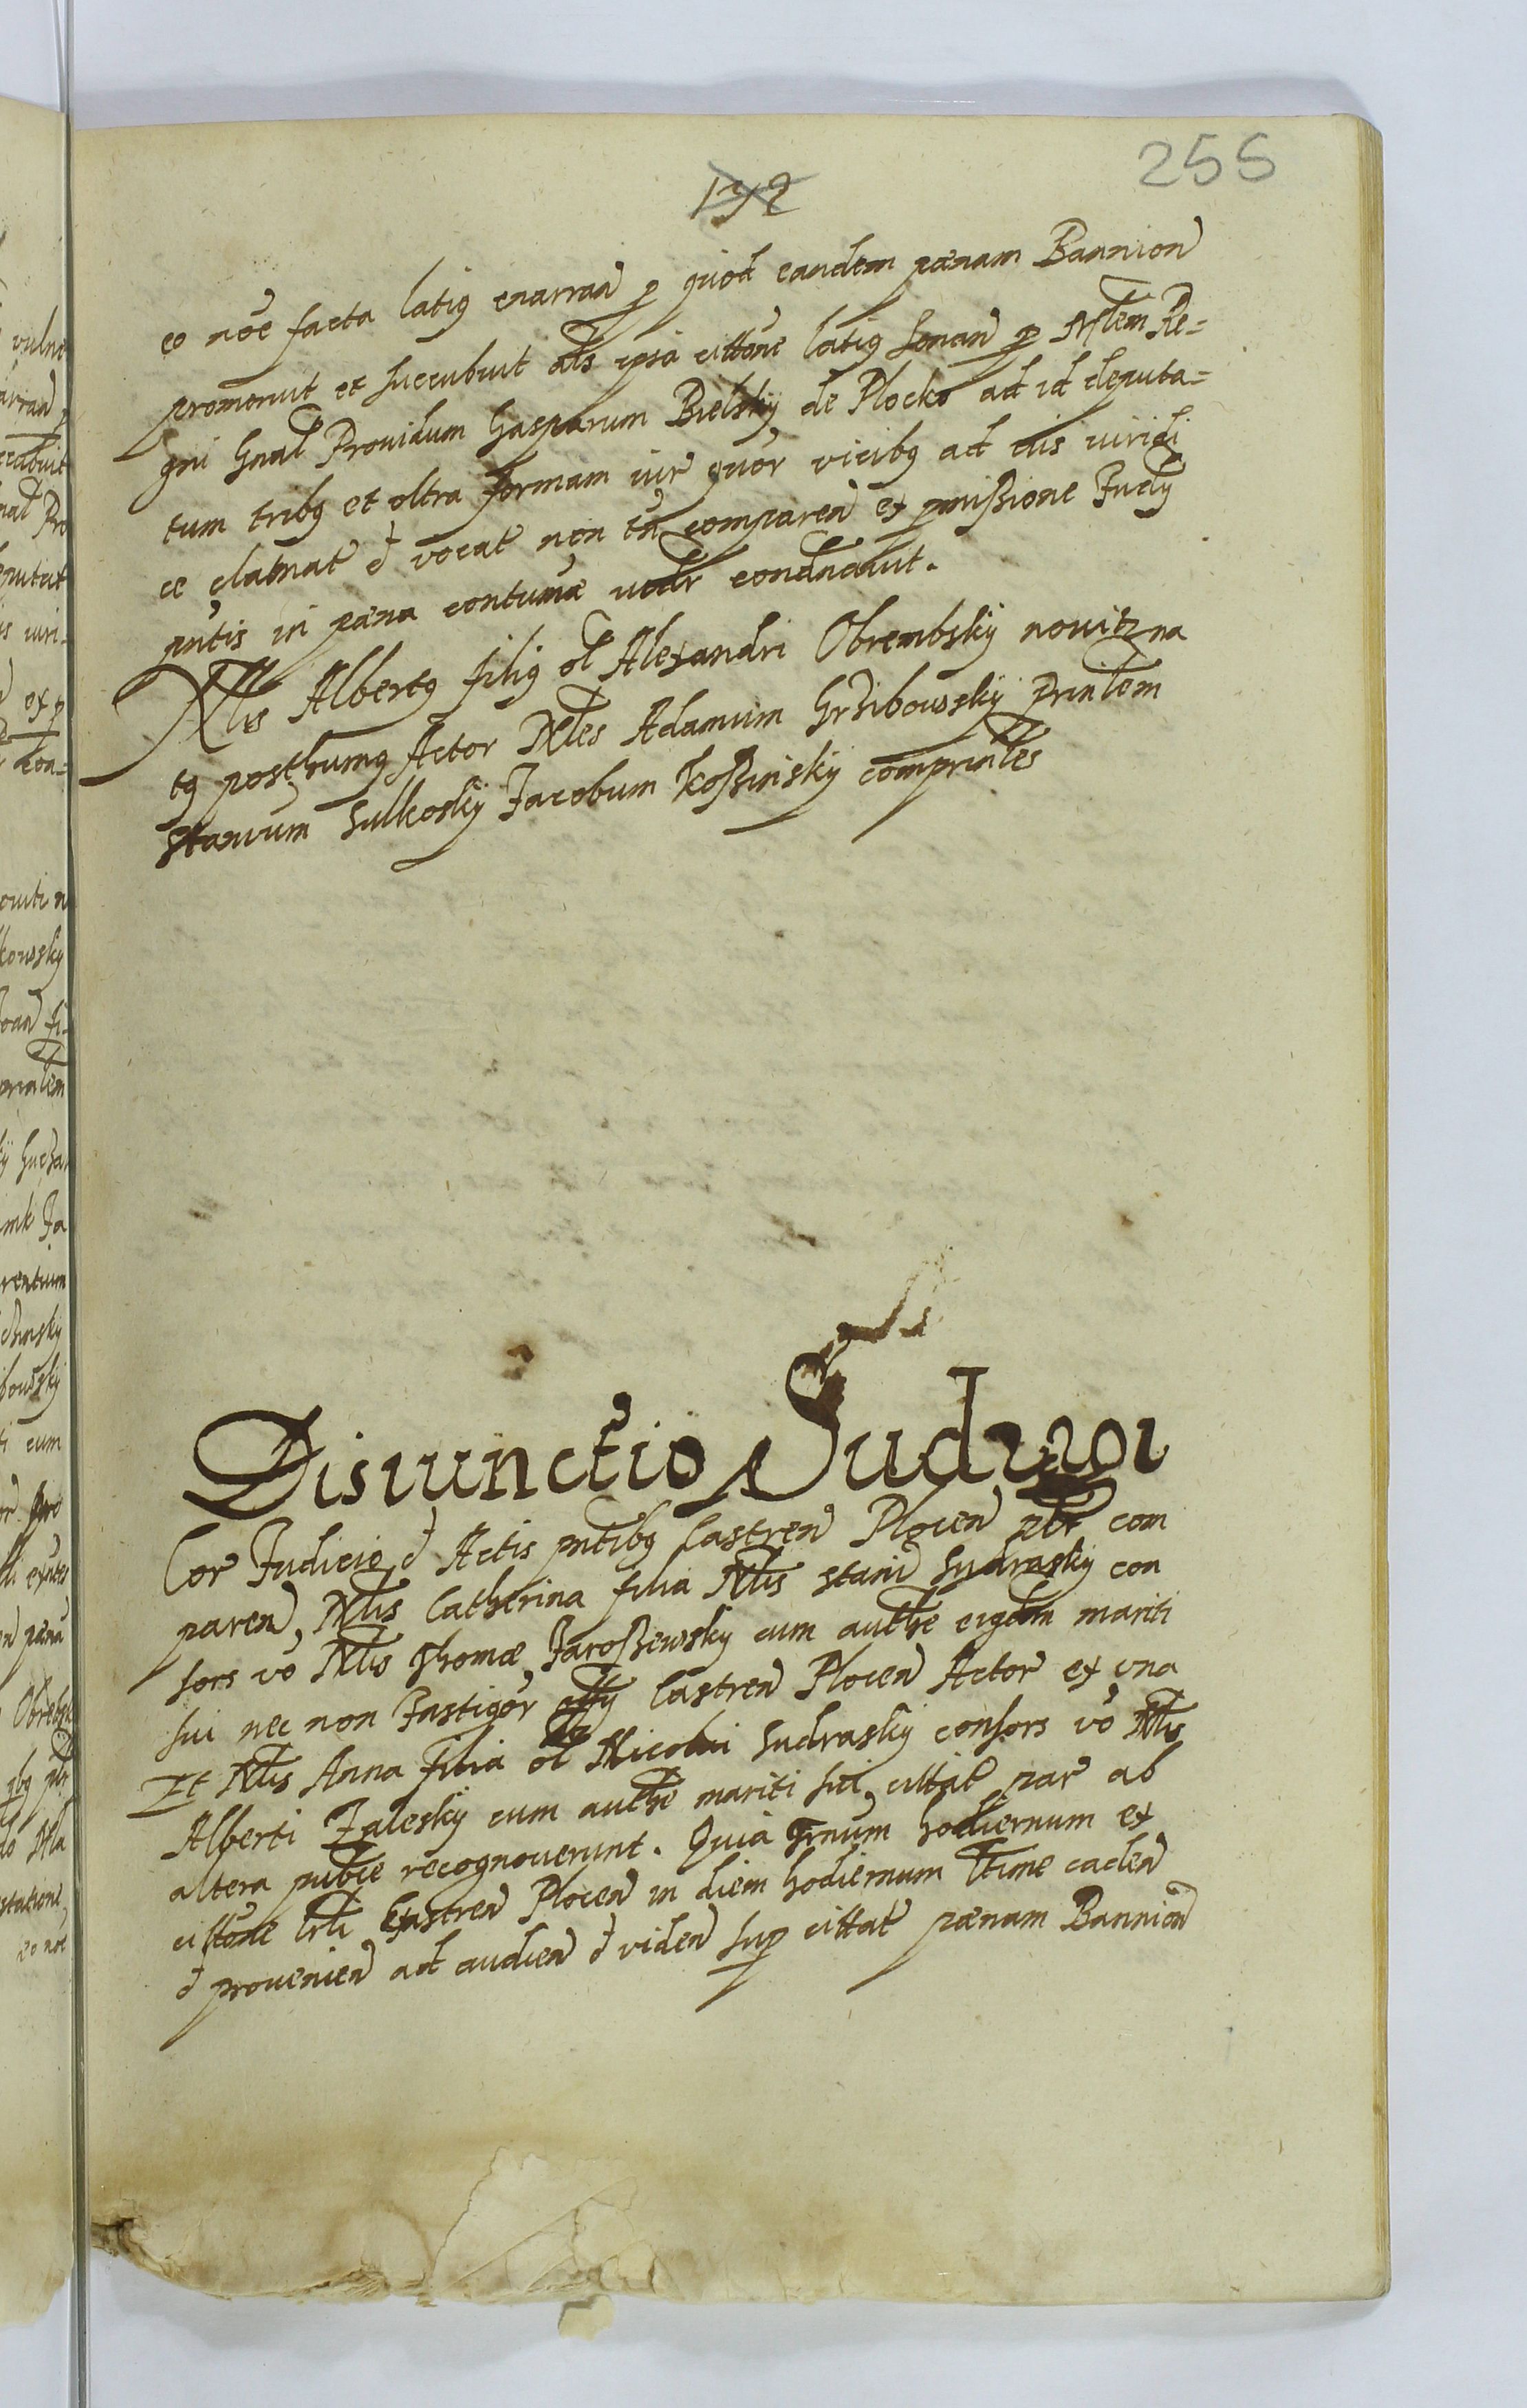 255
eo noe facta latig enarran p quod eandem pœnam Bannion
promeruit et succubuit als ipsa cittone latig sonan p Mlem Re=
gni Gnal Providum Gasparum Bielsky de Plocko ad id deputa=
tum tribg et ultra formam iur quor vicibg ad eis iuridi
ce clamat & vocat non tn comparen ex pmißione Iudy
pntis in pœna contumæ condnavit.
Nlis Albertg filig ol Alexandri Obrembsky novitr na
tg posthumg Actor Nles Adamum Grzibowsky prinlem
Stanum Sulkosky Jacobum Koßinsky comprinles
Disiunctio Sudrgoi
Cor Judicio & Actis pntibg Castren Plocen plr com
paren, Nlis Catherina filia Nlis Stani Sudrasky con
sors vo Nlis Thomæ Jaroßewsky cum authe eigdem mariti
sui nec non Instigor offy Castren Plocen Actor ex una
Et Nlis Anna filia ol Nicolai Sudrasky consors vo Nlis
Alberti Zalesky cum authe mariti sui cittat par ab
altera publce recognoverunt. Quia Trnum hodiernum ex
cittone lrli Castren Plocen in diem hodiernum ltime caden
& provenien ad audien & viden sup cittat pœnam Bannion